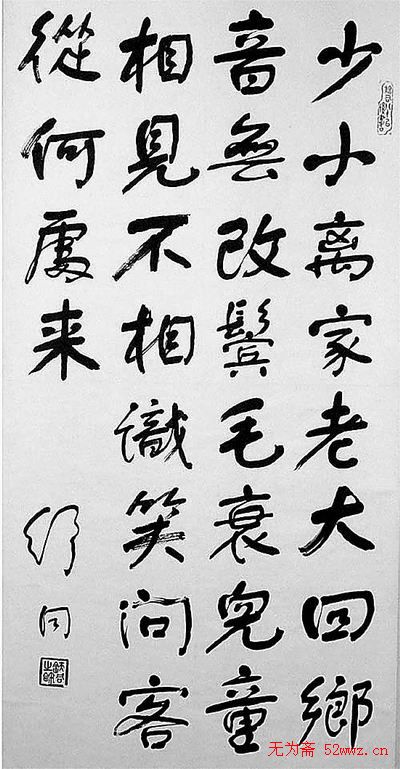 少小离家老大回鄉
音無改鬓毛衰兒童
相見不相識笑問客
從何處来
舒同
无为斋 52wwz.cn